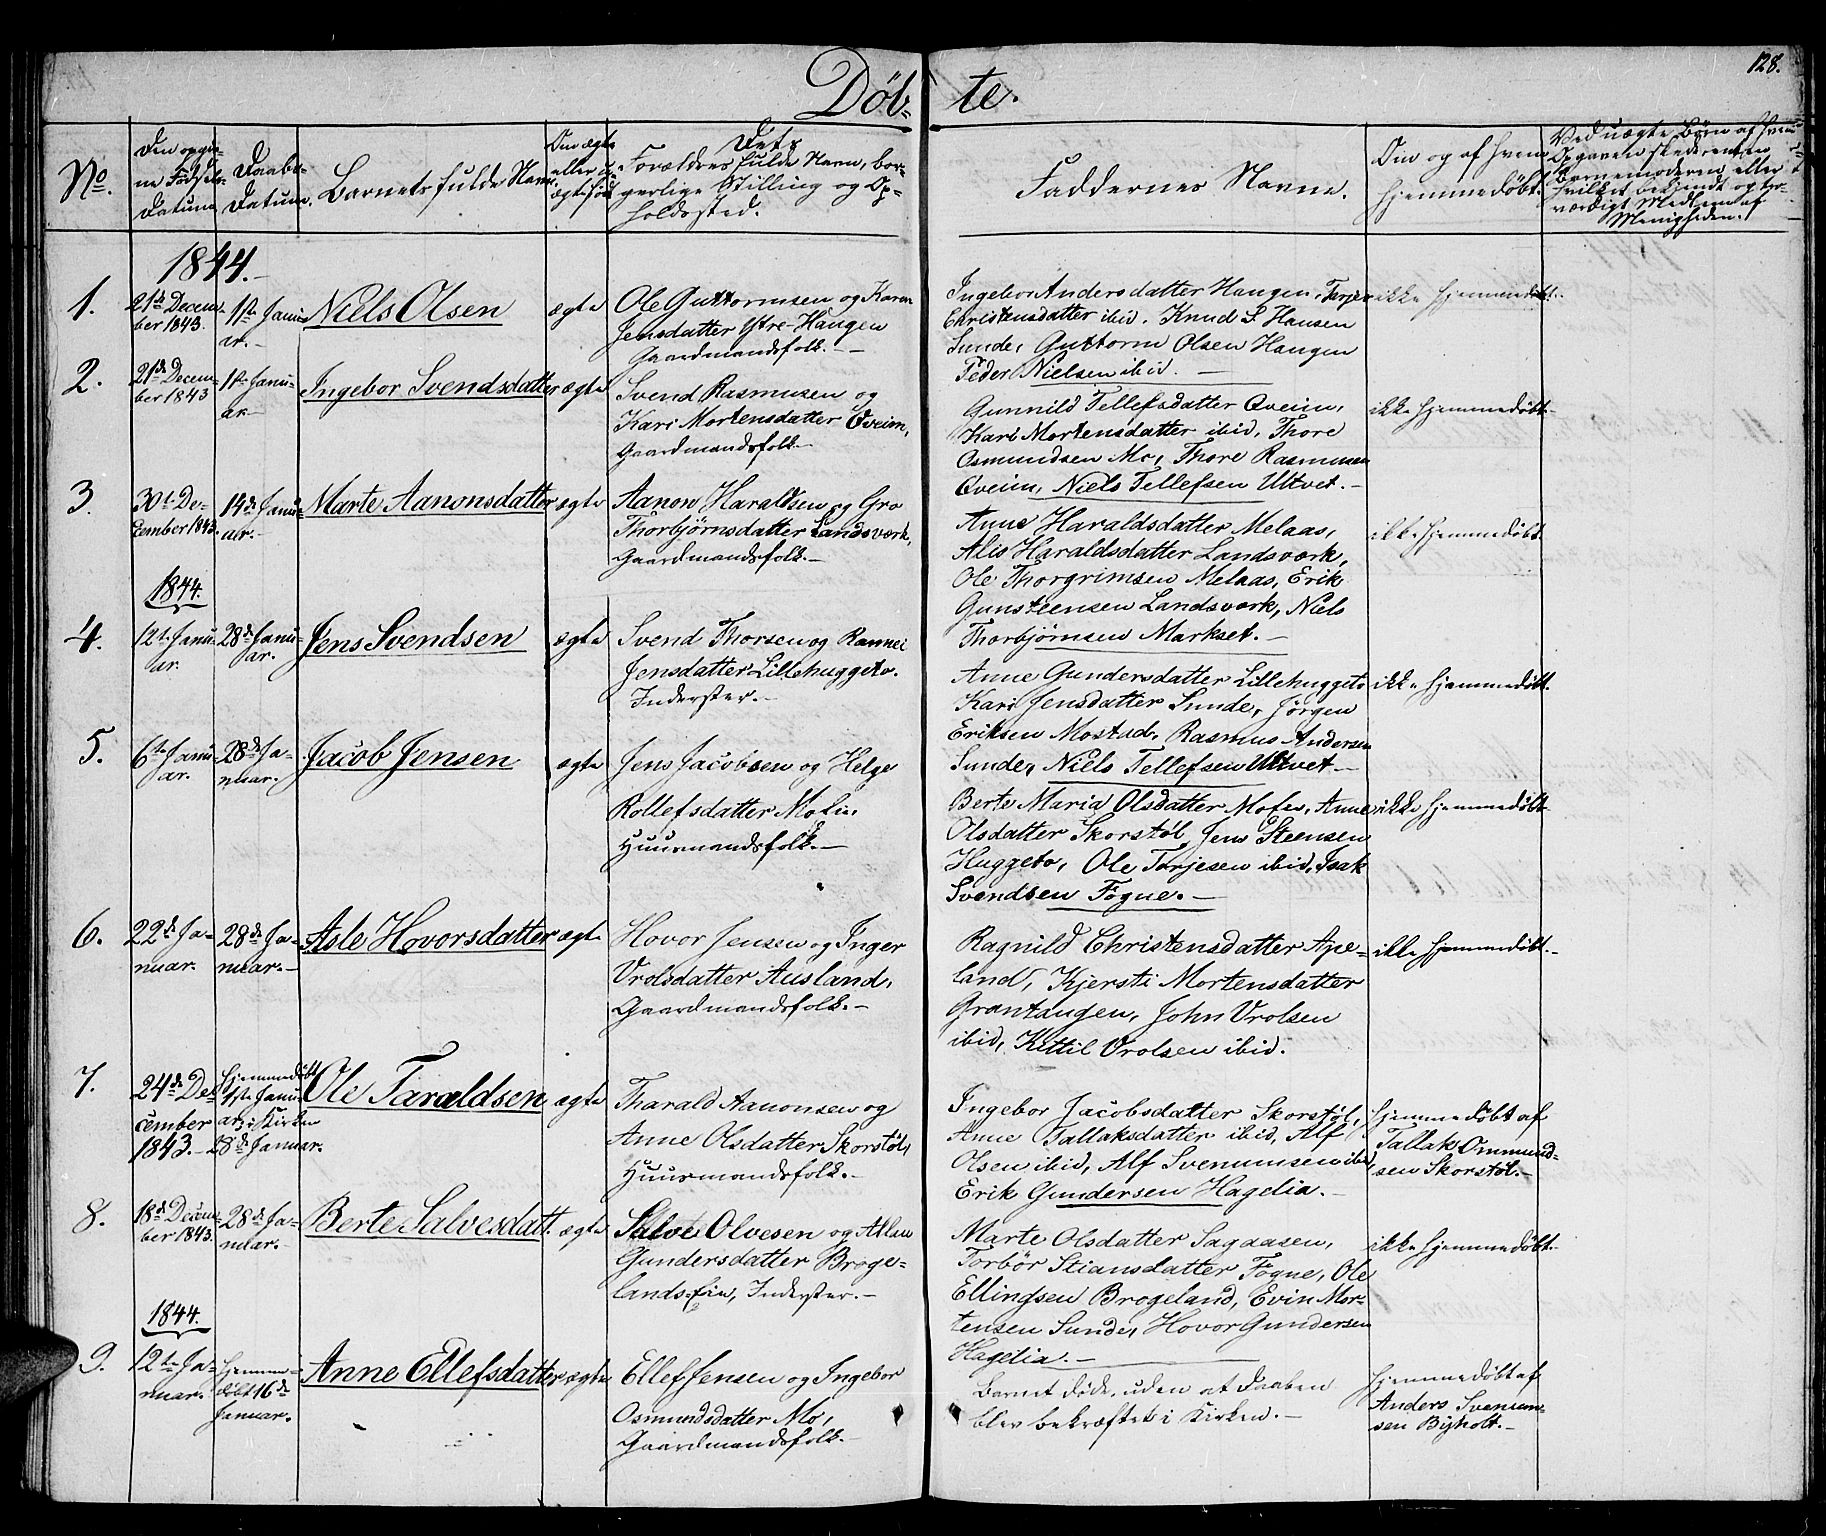 128.
Døb-
te.
No.
Den opgiv-
ne Fødsels-
Datum.
Daabs-
Datum.
Barnets fulde Navn.
Om ægte
eller u-
ægte født
Dets
Forældres fulde Navn, bor-
gerlige Stilling og Op-
holdssted.
Faddernes Navne.
Om og af hvem
hjemmedøbt.
Ved uægte Børn af hvem
Opgaven skede, enten
Barnemoderen eller
hvilket bekjendt og tro-
værdigt Medlem af
Menigheden.
1844.-
1.
21de Decem-
ber 1843.
1ste Janu-
ar.-
Niels Olsen
ægte
Ole Guttormsen og Karen
Jensdatter Ytre-Haugen
Gaardmandsfolk.-
Ingebor Andersdatter Haugen, Terjer
Christensdatter ibid. Knud S. Hansen
Sunde, Guttorm Olsen Haugen
Peder Nielsen ibid.-
ikke hjemmedøbt.
2.
21de Decem-
ber 1843
1ste Janu-
ar.-
Ingebor Svendsdatter
ægte
Svend Rasmusen og
Kari Mortensdatter Qveim,
Gaardmandsfolk.-
Gunnild Tellefsdatter Qveim,
Kari Mortensdatter ibid, Thore
Osmundsen Mo, Thore Rasmusen
Qveim, Niels Tellefsen Ultvet.-
ikke hjemmedøbt.-
3.
30te De-
cember 1843.
14de Janu-
ar.-
Marte Aanonsdatter
ægte
Aanon Haraldsen og Gro
Thorbjørnsdatter Landsverk,
Gaardmandsfolk.-
Anne Haraldsdatter Melaas,
Alis Haraldsdatter Landsverk,
Ole Thorgrimsen Melaas, Erik
Gunsteensen Landsverk, Niels
Thorbjørnsen Markset.-
ikke hjemmedøbt
1844.
4.
12te Janu-
ar.
28de Janu-
ar.
Jens Svendsen
ægte
Svend Thorsen og Rannei
Jensdatter Lillehuggeto.
Inderster.-
Anne Gundersdatter Lillehuggeto
Kari Jensdatter Sunde, Jørgen
Eriksen Mostad, Rasmus Andersen
Sunde, Niels Tellefsen Ultvet.-
ikke hjemmedøbt.
5.
6te Janu-
ar.
28de Ja-
nuar.
Jacob Jensen
ægte
Jens Jacobsen og Helge
Rollefsdatter Molin,
Huusmandsfolk.-
Berte Maria Olsdatter Mofer, Anne
Olsdatter Skorstøl, Jens Steensen
Huggeto, Ole Terjesen ibid, Isak
Svendsen Fogne.-
ikke hjemmedøbt
6.
22de Ja-
nuar.
28de Ja-
nuar.-
Asle Hovorsdatter
ægte
Hovor Jensen og Inger
Vrolsdatter Ausland,
Gaardmandsfolk.-
Ragnild Christensdatter Ape-
land, Kjersti Mortensdatter
Grantangen, John Vrolsen
ibid, Kettil Vrolsen ibid.
ikke hjemmedøbt.-
7.
24de De-
cember
1843.-
hjemmedøbt
1ste Janu-
ar, i Kirken
28de Januar.
Ole Taraldsen
ægte
Tharald Aanonsen og
Anne Olsdatter Skorstøl,
Huusmandsfolk.-
Ingebor Jacobsdatter Skorstøl,
Anne Tallaksdatter ibid, Alf
Olsen ibid, Alf Svenumsen ibid,
Erik Gundersen Hagelia.-
hjemmedøbt af
Tallak Ommund-
sen Skorstøl.-
8.
18de Decem-
ber 1843.
28de Ja-
nuar.-
Berte Salvesdatt.
ægte
Salve Olvesen og Atlau
Gundersdatter Broge-
lands-Eie, Inderster.-
Marte Olsdatter Sagaasen,
Torbør Stiansdatter Fogne, Ole
Ellingsen Brogeland, Evin Mor-
tensen Sunde, Hovor Gundersen
Hagelia.-
ikke hjemmedøbt.-
1844.
9.
12te Ja-
nuar.
hjemme-
døbt 16de
Januar.
Anne Ellefsdatter
ægte
Ellef Jensen og Ingebor
Osmundsdatter Mo,
Gaardmandsfolk.-
Barnet døde, uden at Daaben
blev bekræftet i Kirken.-
hjemmedøbt af
Anders Svenum-
sen Bijholt.-